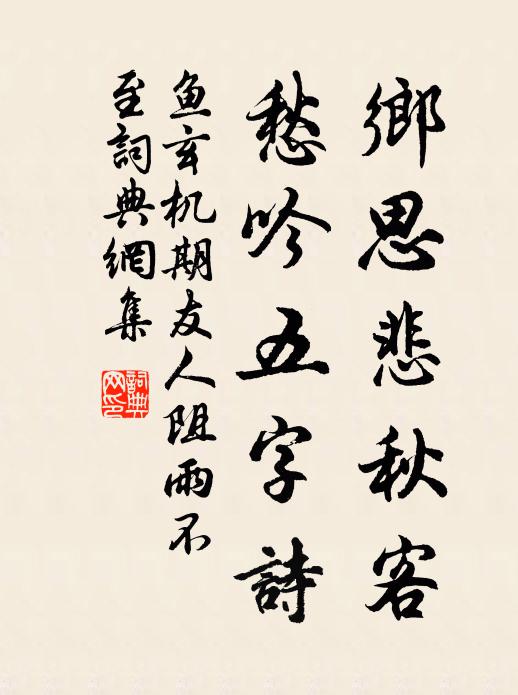 鄉思悲秋客
愁吟五字詩
魚玄机期友人阻雨不
至詞典網集
詞典
网印